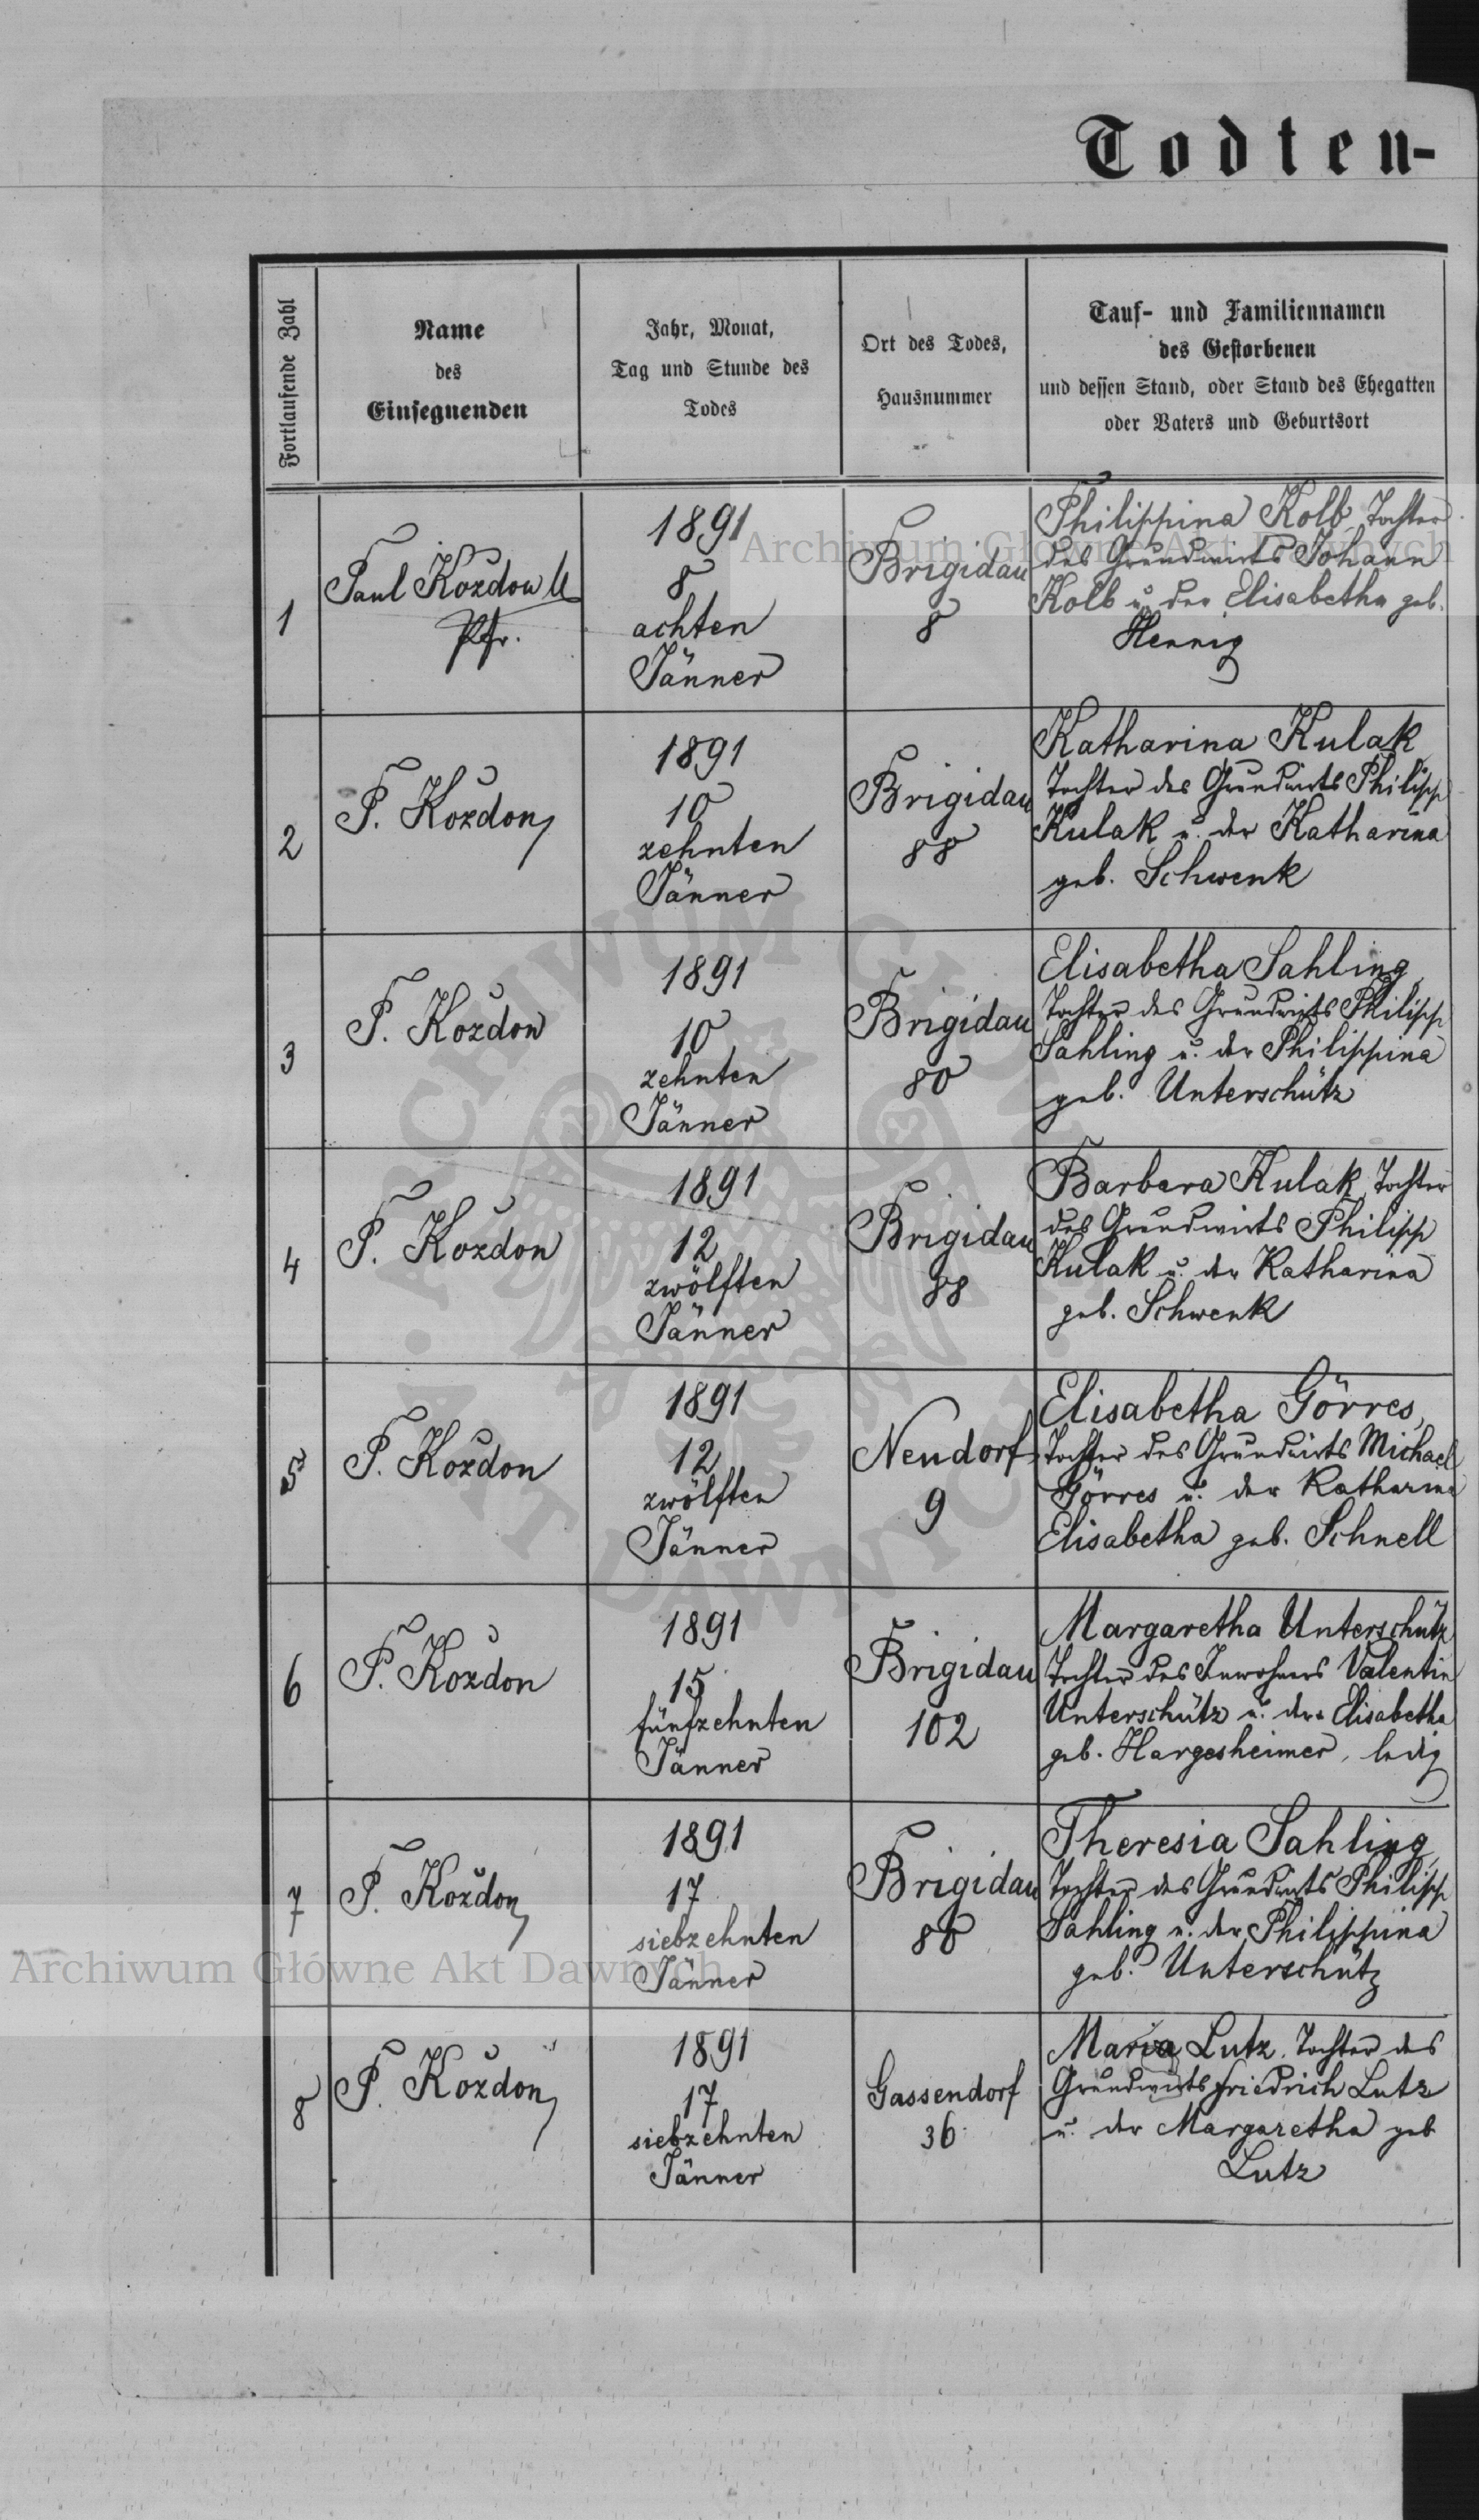 Todten-
Fortlaufende Zahl
Name
des
Einsegnenden
Jahr, Monat,
Tag und Stunde des
Todes
Ort des Todes,
Hausnummer
Tauf- und Familiennamen
des Gestorbenen
und dessen Stand, oder Stand des Ehegatten
oder Vaters und Geburtsort
1
Paul Kozdon
Pfr.
1891
8
achten
Jänner
Brigidau
8
Philippina Kolb, Tochter
des Grundwirts Johann
Kolb u. der Elisabetha geb.
Hennig
2
P. Kozdon
1891
10
zehnten
Jänner
Brigidau
88
Katharina Kulak,
Tochter des Grundwirts Philipp
Kulak u. der Katharina
geb. Schwenk
3
P. Kozdon
1891
10
zehnten
Jänner
Brigidau
80
Elisabetha Sahling,
Tochter des Grundwirts Philipp
Sahling u. der Philippina
geb. Unterschütz
4
P. Kozdon
1891
12
zwölften
Jänner
Brigidau
88
Barbara Kulak, Tochter
des Grundwirts Philipp
Kulak u. der Katharina
geb. Schwenk
5
P. Kozdon
1891
12
zwölften
Jänner
Neudorf
9
Elisabetha Görres,
Tochter des Grundwirts Michael
Görres u. der Katharina
Elisabetha geb. Schnell
6
P. Kozdon
1891
15
fünfzehnten
Jänner
Brigidau
102
Margaretha Unterschütz
Tochter des Inwohners Valentin
Unterschütz u. der Elisabetha
geb. Hargesheimer, ledig
7
P. Kozdon
1891
17
siebzehnten
Jänner
Brigidau
80
Theresia Sahling,
Tochter des Grundwirts Philipp
Sahling u. der Philippina
geb. Unterschütz
8
P. Kozdon
1891
17
siebzehnten
Jänner
Gassendorf
36
Maria Lutz, Tochter des
Grundwirts Friedrich Lutz
u. der Margaretha geb
Lutz
Archiwum Główne Akt Dawnych
Archiwum Główne Akt Dawnych
ARCHIWUM GŁÓWNE
AKT DAWNYCH